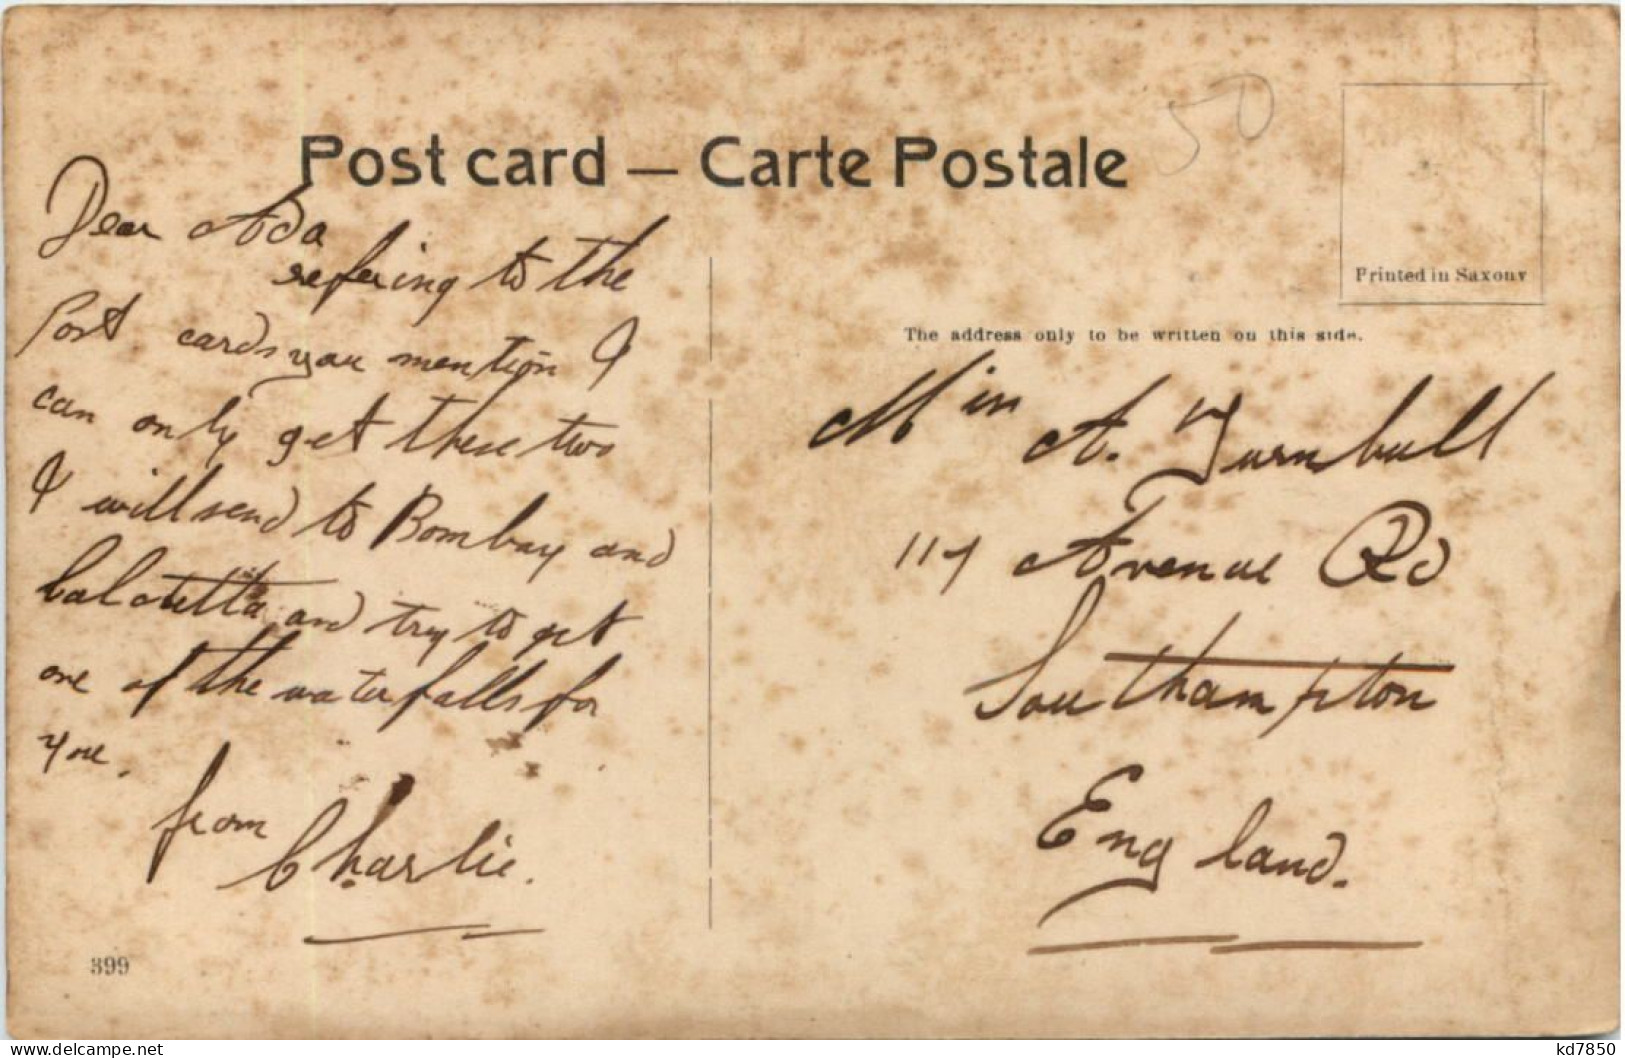 50
Post card — Carte Postale
Printed in Saxony
The address only to be written on this side.
Dear Ada
refering to the
Post cards you mention I
can only get these two
I will send to Bombay and
Calcutta and try to get
one of the waterfalls for
you.
from
Charlie.
Miss A. Turnbull
117 Avenue Rd
Southampton
England.
399
delcampe.net
kd7850